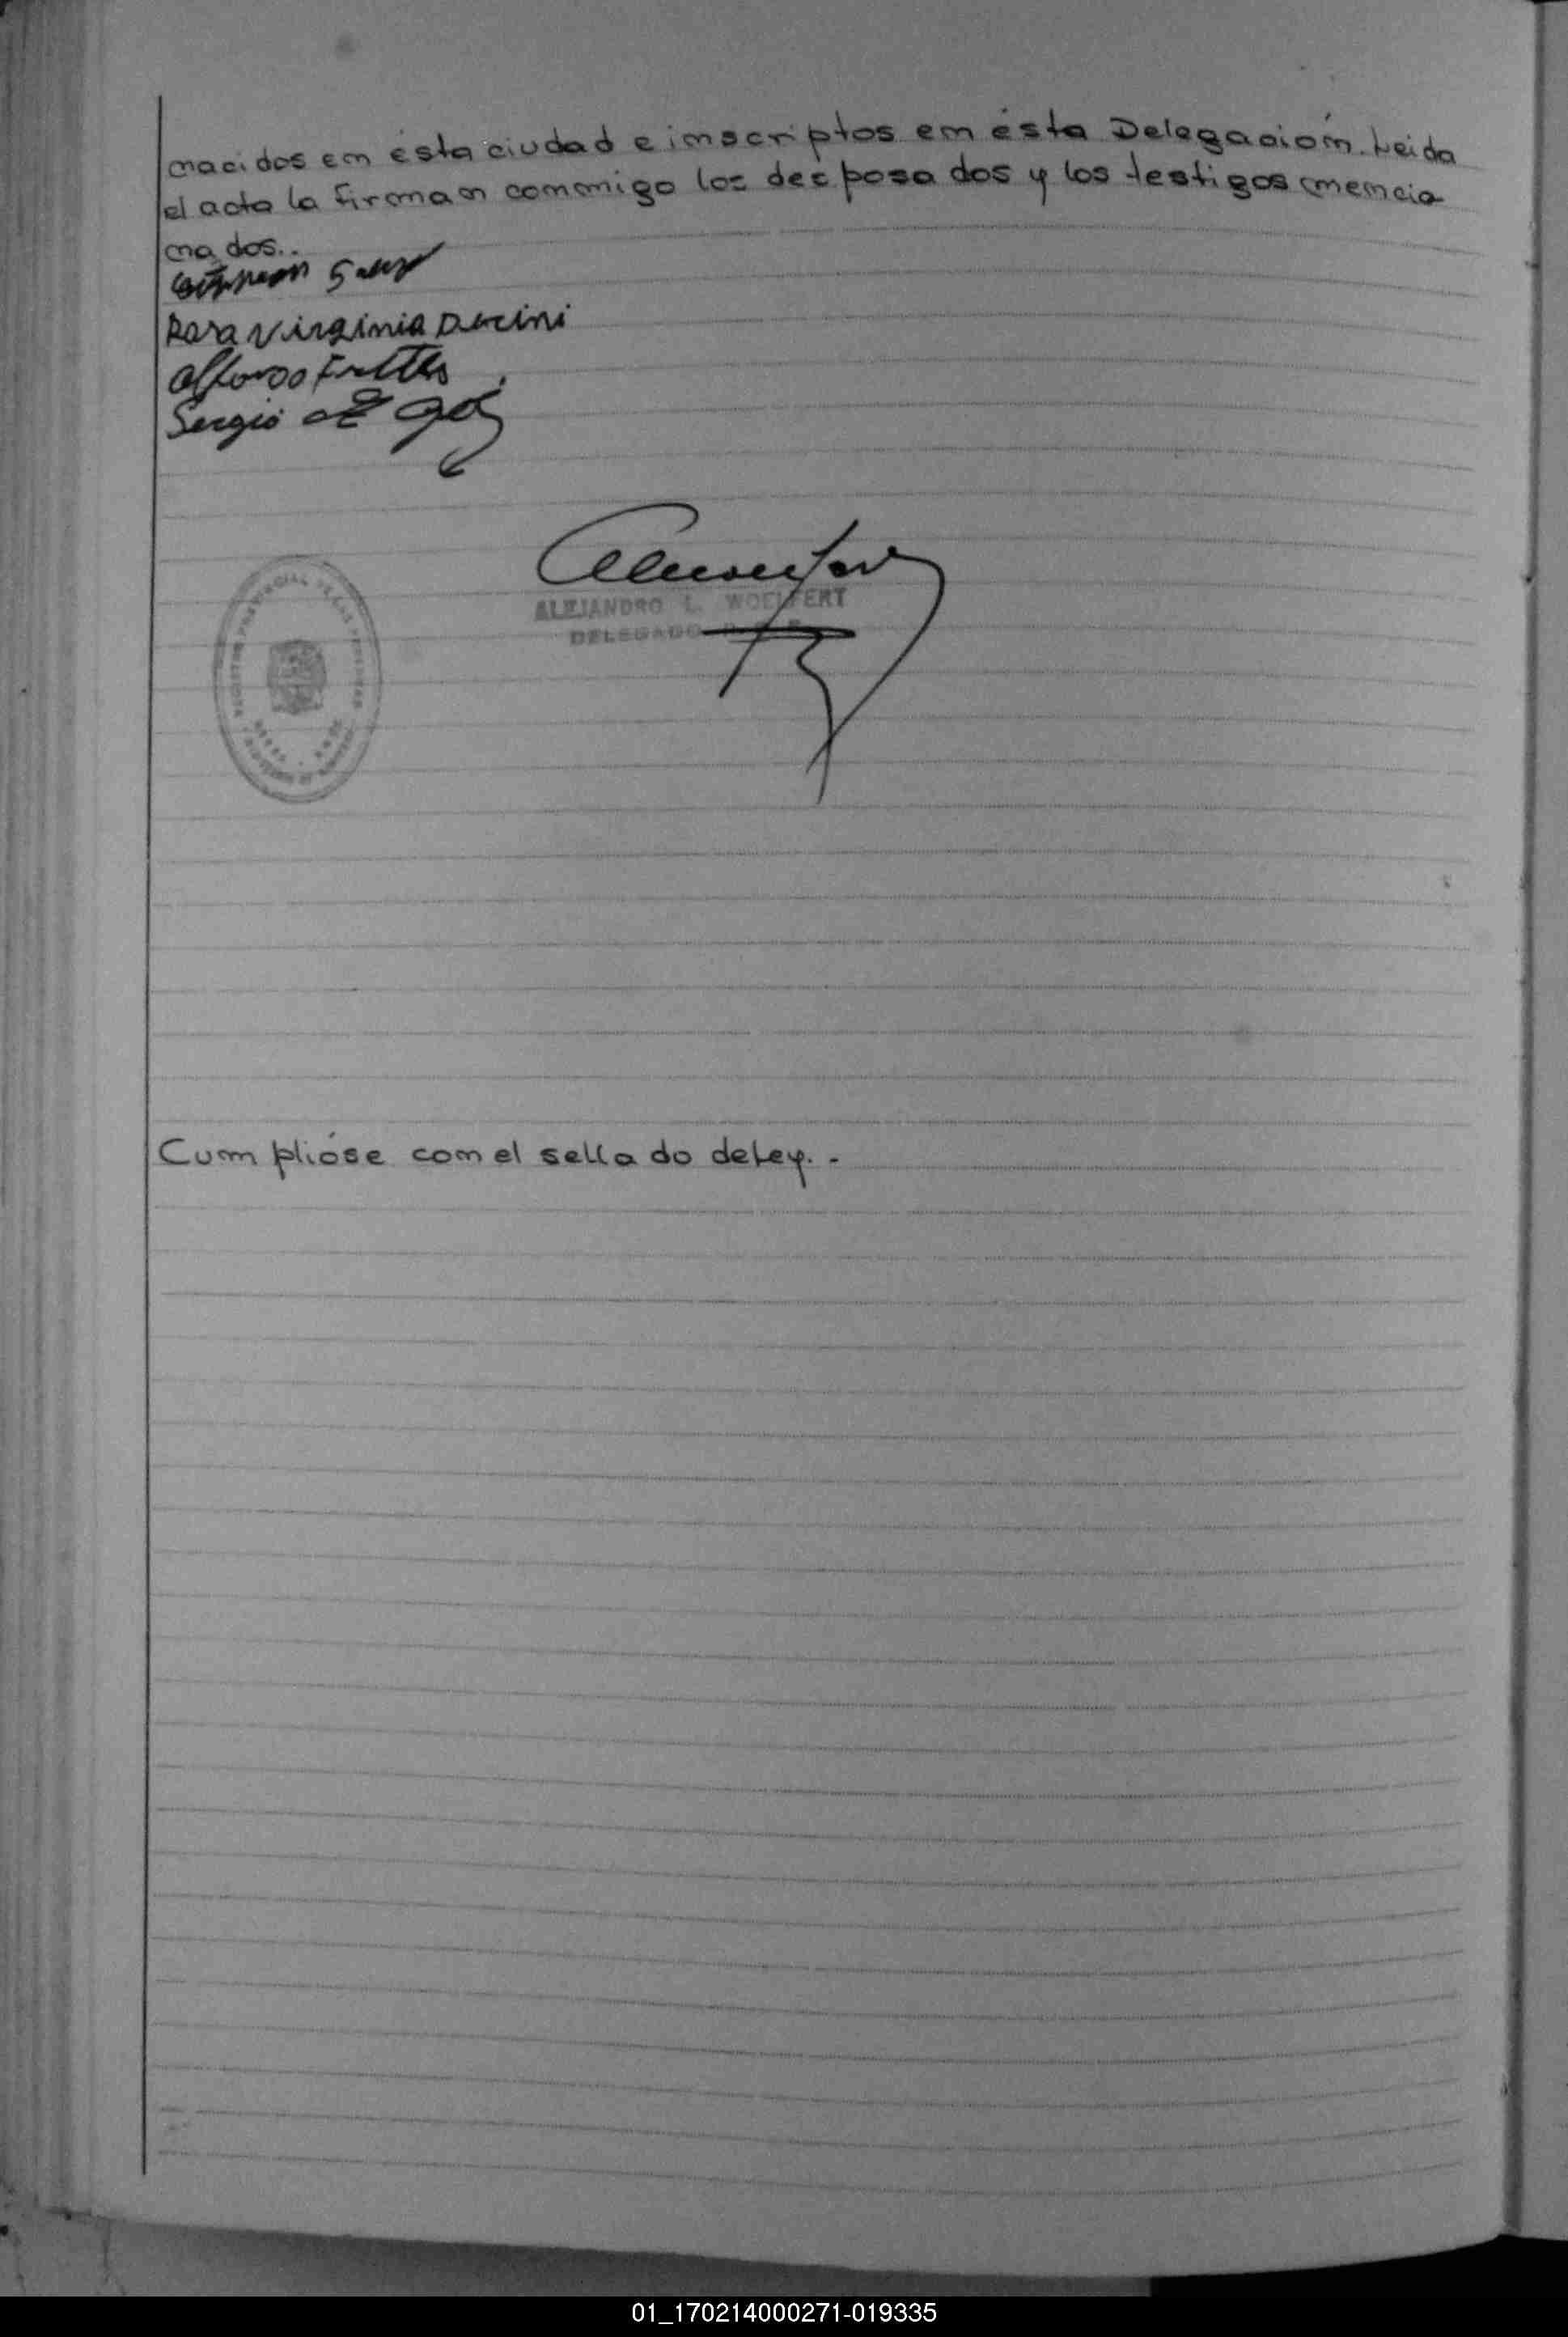 nacidos en ésta ciudad e inscriptos en ésta Delegación. Leida
el acta la firman conmigo los desposados y los testigos mencio
nados..
Rosa Virginia
Alfonso
Sergio
ALEJANDRO L. WOELFERT
DELEGADO
Cumplióse con el sellado de Ley. -
01_170214000271-019335